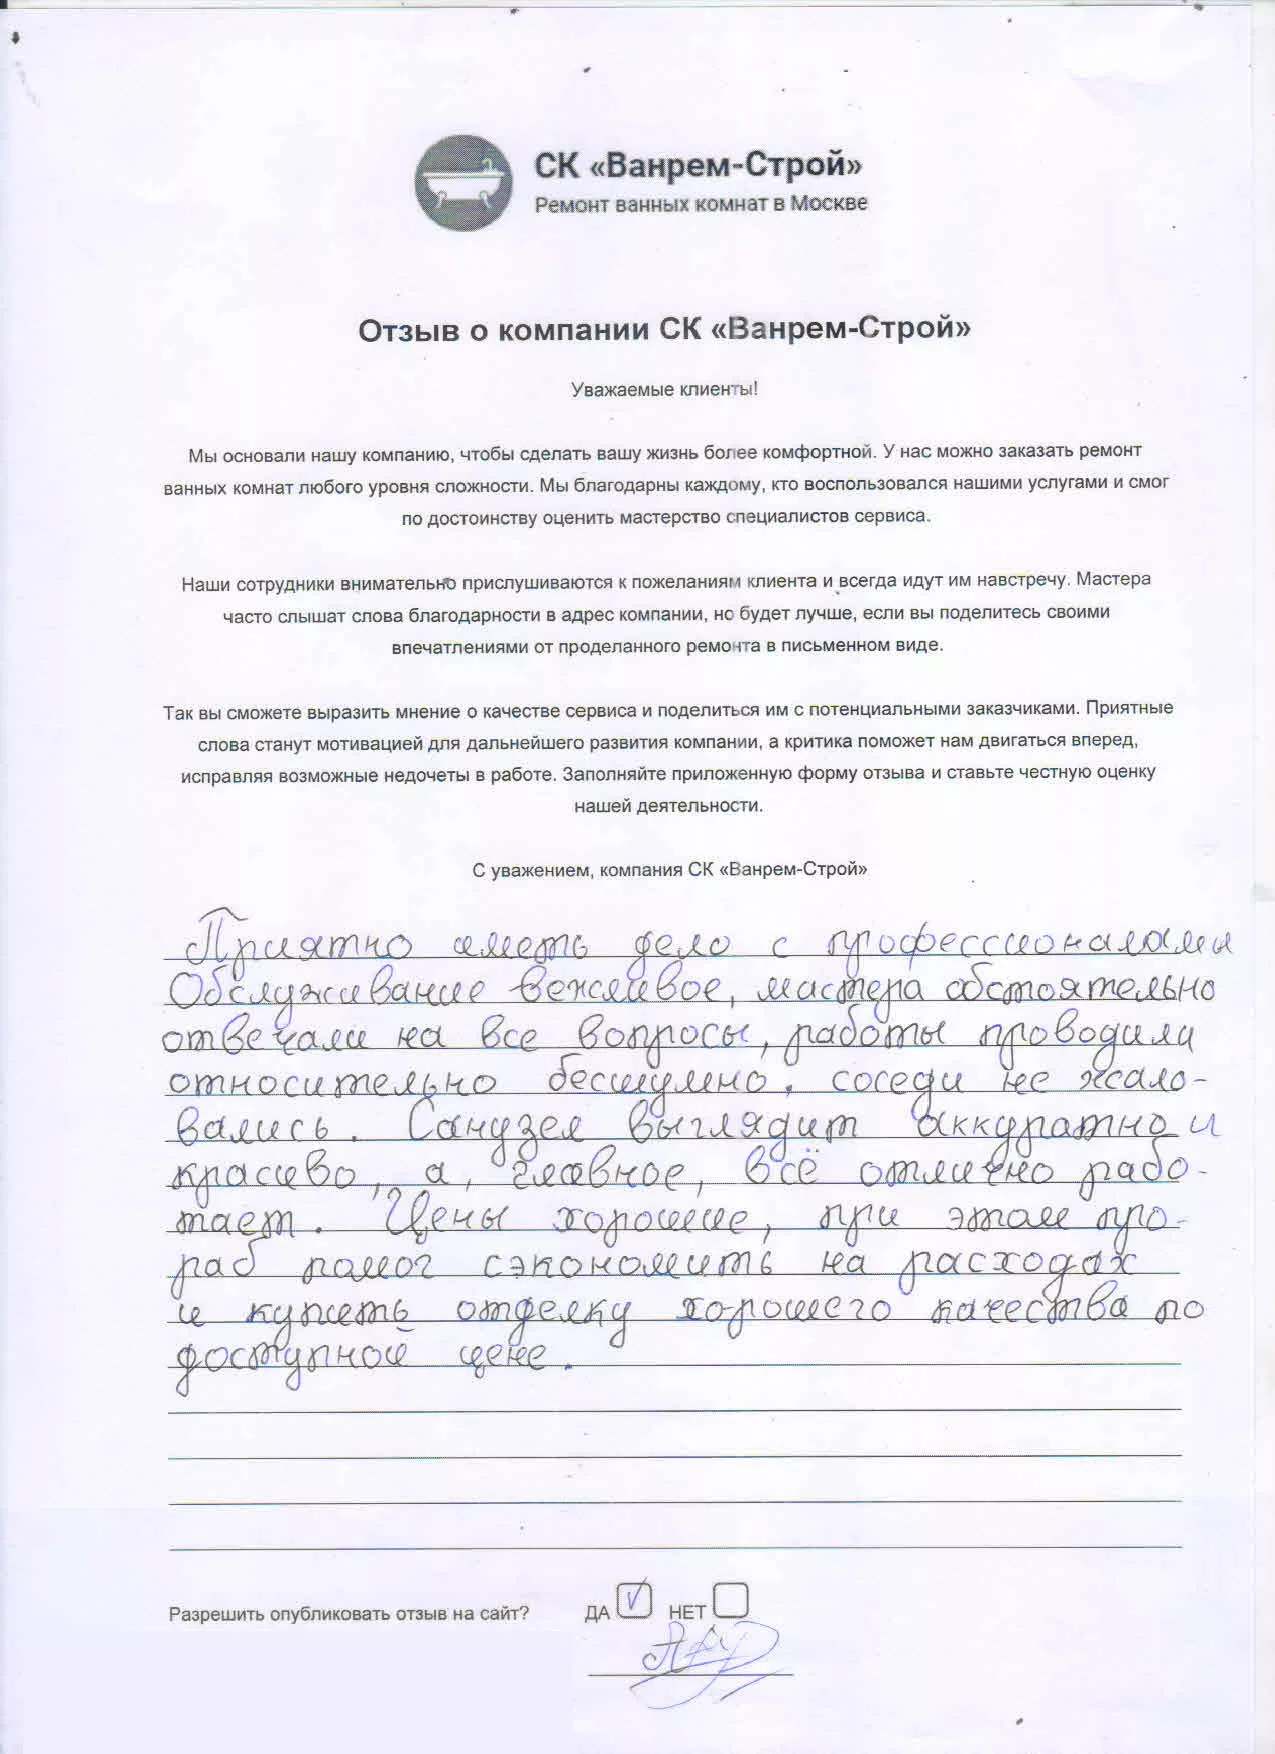 СК «Ванрем-Строй»
Ремонт ванных комнат в Москве
Отзыв о компании СК «Ванрем-Строй»
Уважаемые клиенты!
Мы основали нашу компанию, чтобы сделать вашу жизнь более комфортной. У нас можно заказать ремонт
ванных комнат любого уровня сложности. Мы благодарны каждому, кто воспользовался нашими услугами и смог
по достоинству оценить мастерство специалистов сервиса.
Наши сотрудники внимательно прислушиваются к пожеланиям клиента и всегда идут им навстречу. Мастера
часто слышат слова благодарности в адрес компании, но будет лучше, если вы поделитесь своими
впечатлениями от проделанного ремонта в письменном виде.
Так вы сможете выразить мнение о качестве сервиса и поделиться им с потенциальными заказчиками. Приятные
слова станут мотивацией для дальнейшего развития компании, а критика поможет нам двигаться вперед,
исправляя возможные недочеты в работе. Заполняйте приложенную форму отзыва и ставьте честную оценку
нашей деятельности.
С уважением, компания СК «Ванрем-Строй»
Приятно иметь дело с профессионалами
Обслуживание вежливое, мастера обстоятельно
отвечали на все вопросы, работы проводили
относительно бесшумно, соседи не жало-
вались. Санузел выглядит аккуратно и
красиво, а, главное, всё отлично рабо-
тает. Цены хорошие, при этом про-
раб помог сэкономить на расходах
и купить отделку хорошего качества по
доступной цене.
Разрешить опубликовать отзыв на сайт? ДА НЕТ